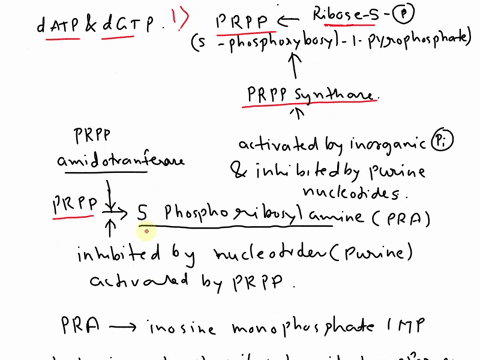 dATP & dGTP. 1) PRPP ← Ribose-5-P
(5-phosphoxybosyl-1-pyrophosphate)
PRPP synthase
PRPP
amidotranferase
activated by inorganic Pi
& inhibited by purine
nucleotides.
PRPP → 5 Phosphoribosylamine (PRA)
inhibited by nucleotides (purine)
activated by PRPP.
PRA → inosine monophosphate IMP